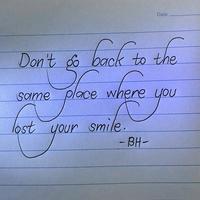 Date
Don't go back to the
same place where you
lost your smile.
-BH-